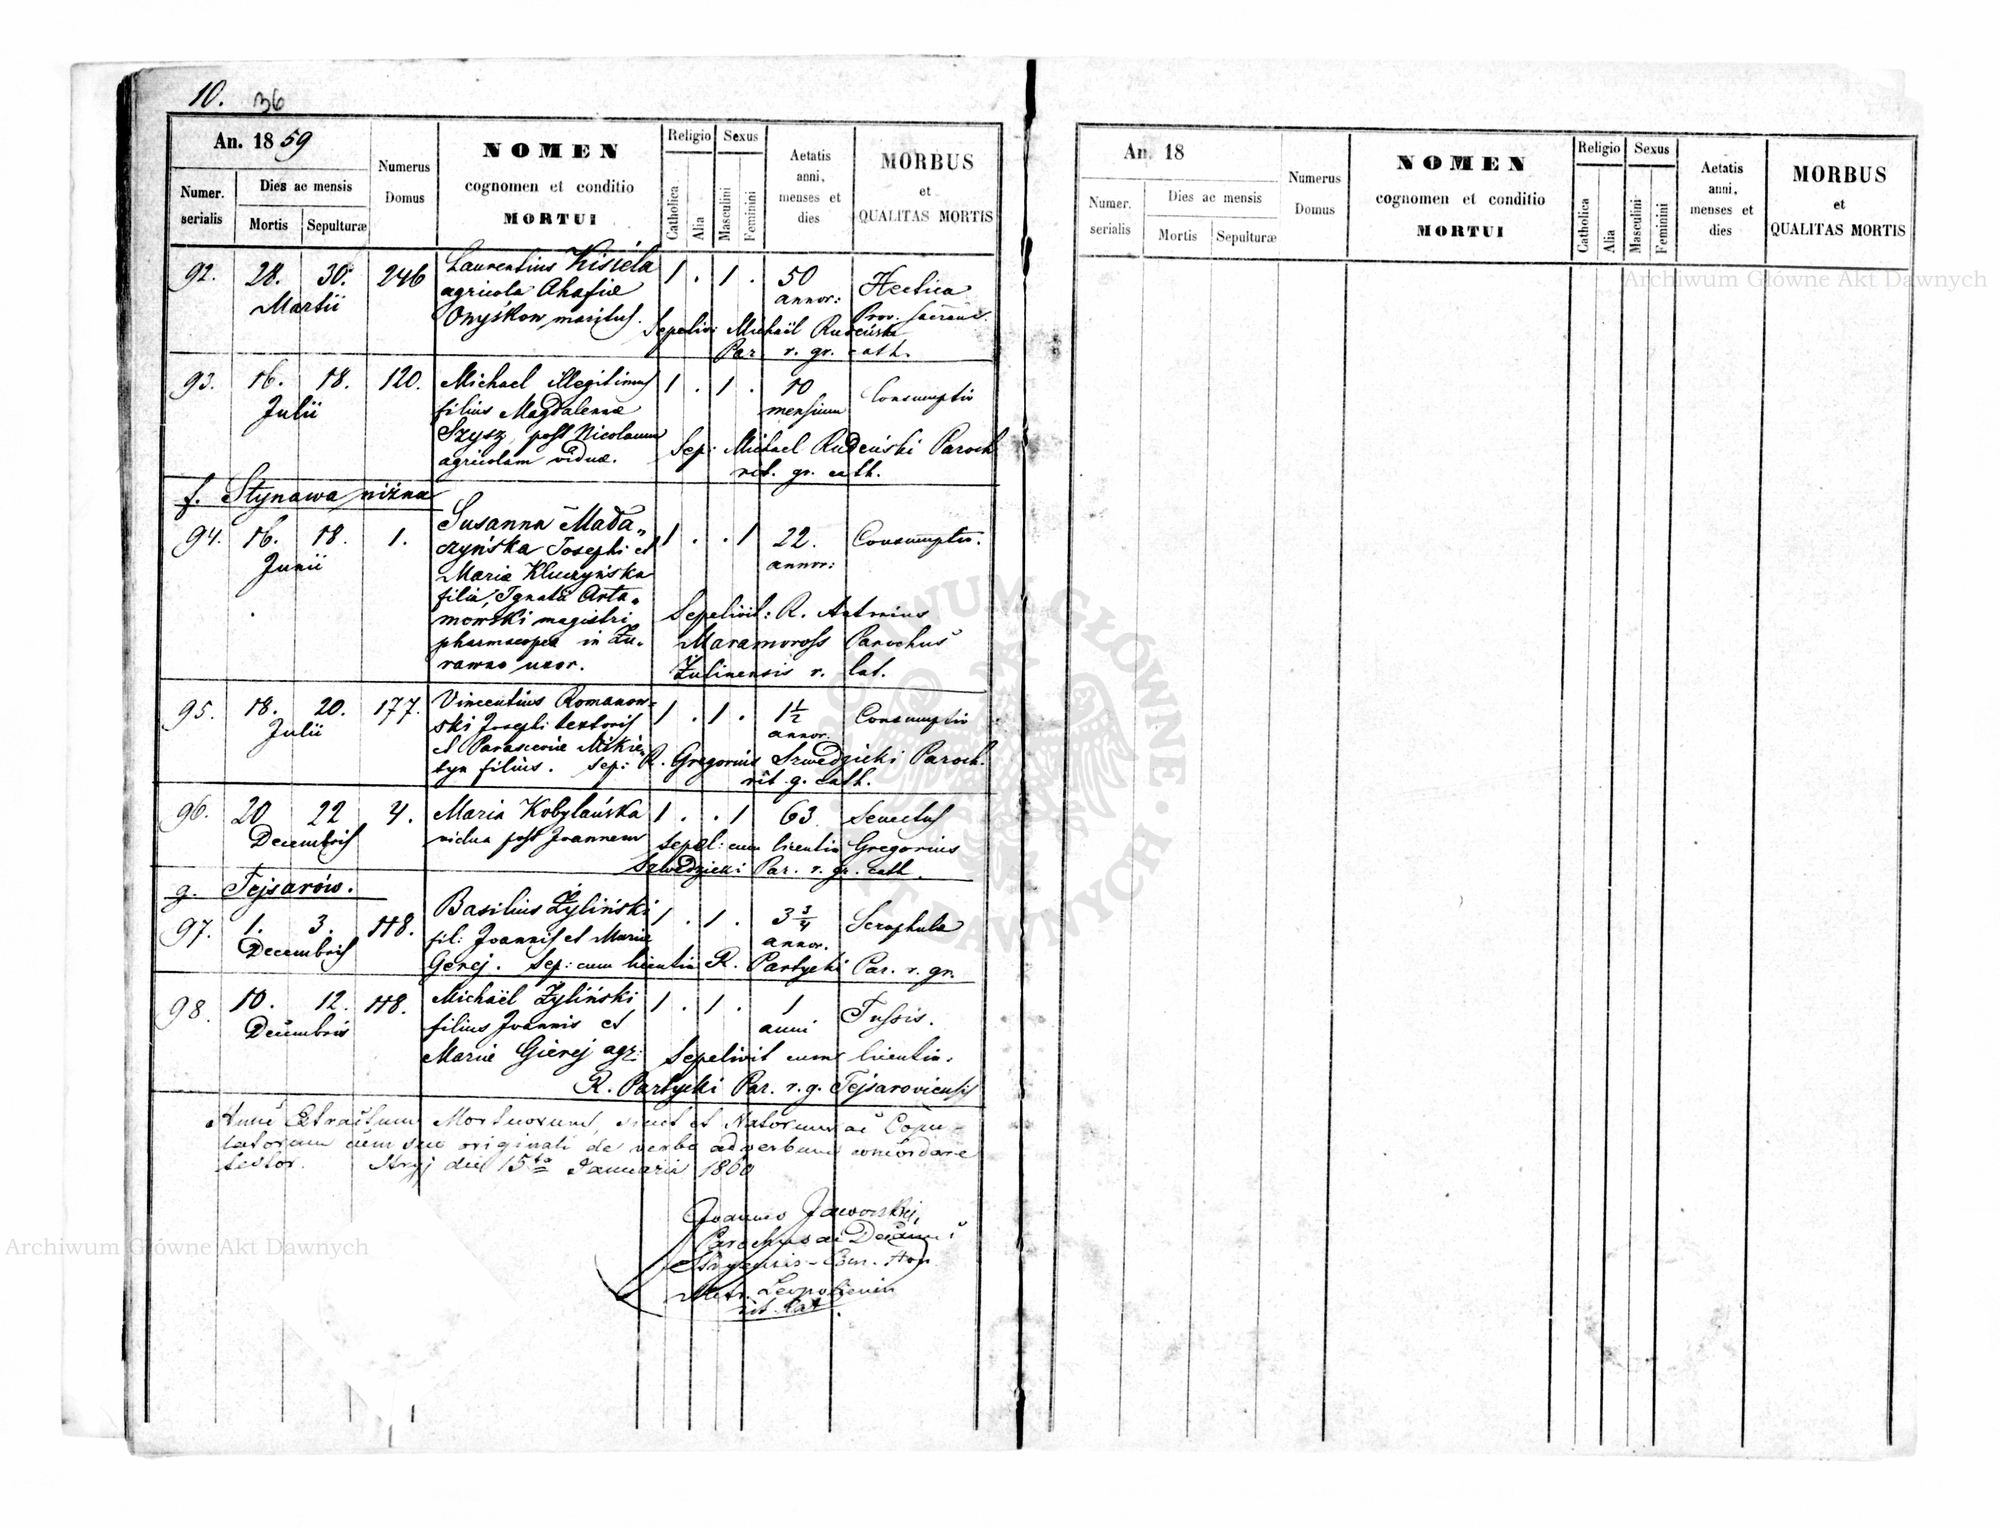 10. 36
An. 18 59
Numer. serialis
Dies ac mensis
Mortis
Sepulturæ
Numerus Domus
NOMEN
cognomen et conditio
MORTUI
Religio
Catholica
Alia
Sexus
Masculini
Feminini
Aetatis anni, menses et dies
MORBUS
et
QUALITAS MORTIS
92. 28. 30. 246 Laurentius Kisiela 1 . 1 . 50 Hectica
Martii agricola Ahafiæ annor: Prov. sacram.
Onyśkow maritus. Sepelivi: Michaël Rudeński
Par r. gr. cath.
93. 16. 18. 120. Michael illegitimus 1 . 1 . 10 Consumptio
Julii filius Magdalenæ mensium
Szysz, post Nicolaum Sep: Michael Rudeński Paroch
agricolam viduæ. rit. gr. cath.
f. Stynawa niżna
94. 16. 18. 1. Susanna Mada„ 1 . . 1 22. Consumptio.
Junii czyńska Josephi et annor:
Mariæ Kluczyńska
filia, Ignatii Arta„
mowski magistri Sepelivit: R. Antonius
pharmacopeæ in Żu„ Maramoross Parochus
rawno uxor. Żulinensis r. lat.
95. 18. 20. 177. Vincentius Romanow„ 1 . 1 . 1½ Consumptio
Julii ski Josephi textoris annor.
et Parasceviæ Mikie„
tyn filius. Sep: R. Gregorius Szwedzicki Paroch.
rit g. cath.
96. 20 22 4. Maria Kobylańska 1 . . 1 63 Senectus
Decembris vidua post Joannem sepel: cum licentia Gregorius
Szwedzicki Par. r. gr. cath.
g. Tejsarów.
97. 1. 3. 118. Basilius Żyliński 1 . 1 . 3¾ Scrophula
Decembris fil: Joannis et Mariæ annor.
Gerej. Sep: cum licentia R. Partycki Par. r. gr.
98. 10. 12. 118. Michaël Żyliński 1 . 1 . 1 Tussis.
Decembris filius Joannis et anni
Mariæ Gierej agr: Sepelivit cum licentia.
R. Partycki Par. r. g. Tejsaroviensis
Extractum Mortuorum, sicut et Natorum ac Copu„
latorum cum suo originali de verbo ad verbum concordare
testor. Stryj die 15ta Januarii 1860
Joannes Jaworski,
Parochus ac Decanus
Stryensis - Can. Hon
Metr. Leopoliensis
rit. Lat.
An. 18
Numer. serialis
Dies ac mensis
Mortis
Sepulturæ
Numerus Domus
NOMEN
cognomen et conditio
MORTUI
Religio
Catholica
Alia
Sexus
Masculini
Feminini
Aetatis anni, menses et dies
MORBUS
et
QUALITAS MORTIS
Archiwum Główne Akt Dawnych
Archiwum Główne Akt Dawnych
ARCHIWUM GŁÓWNE AKT DAWNYCH